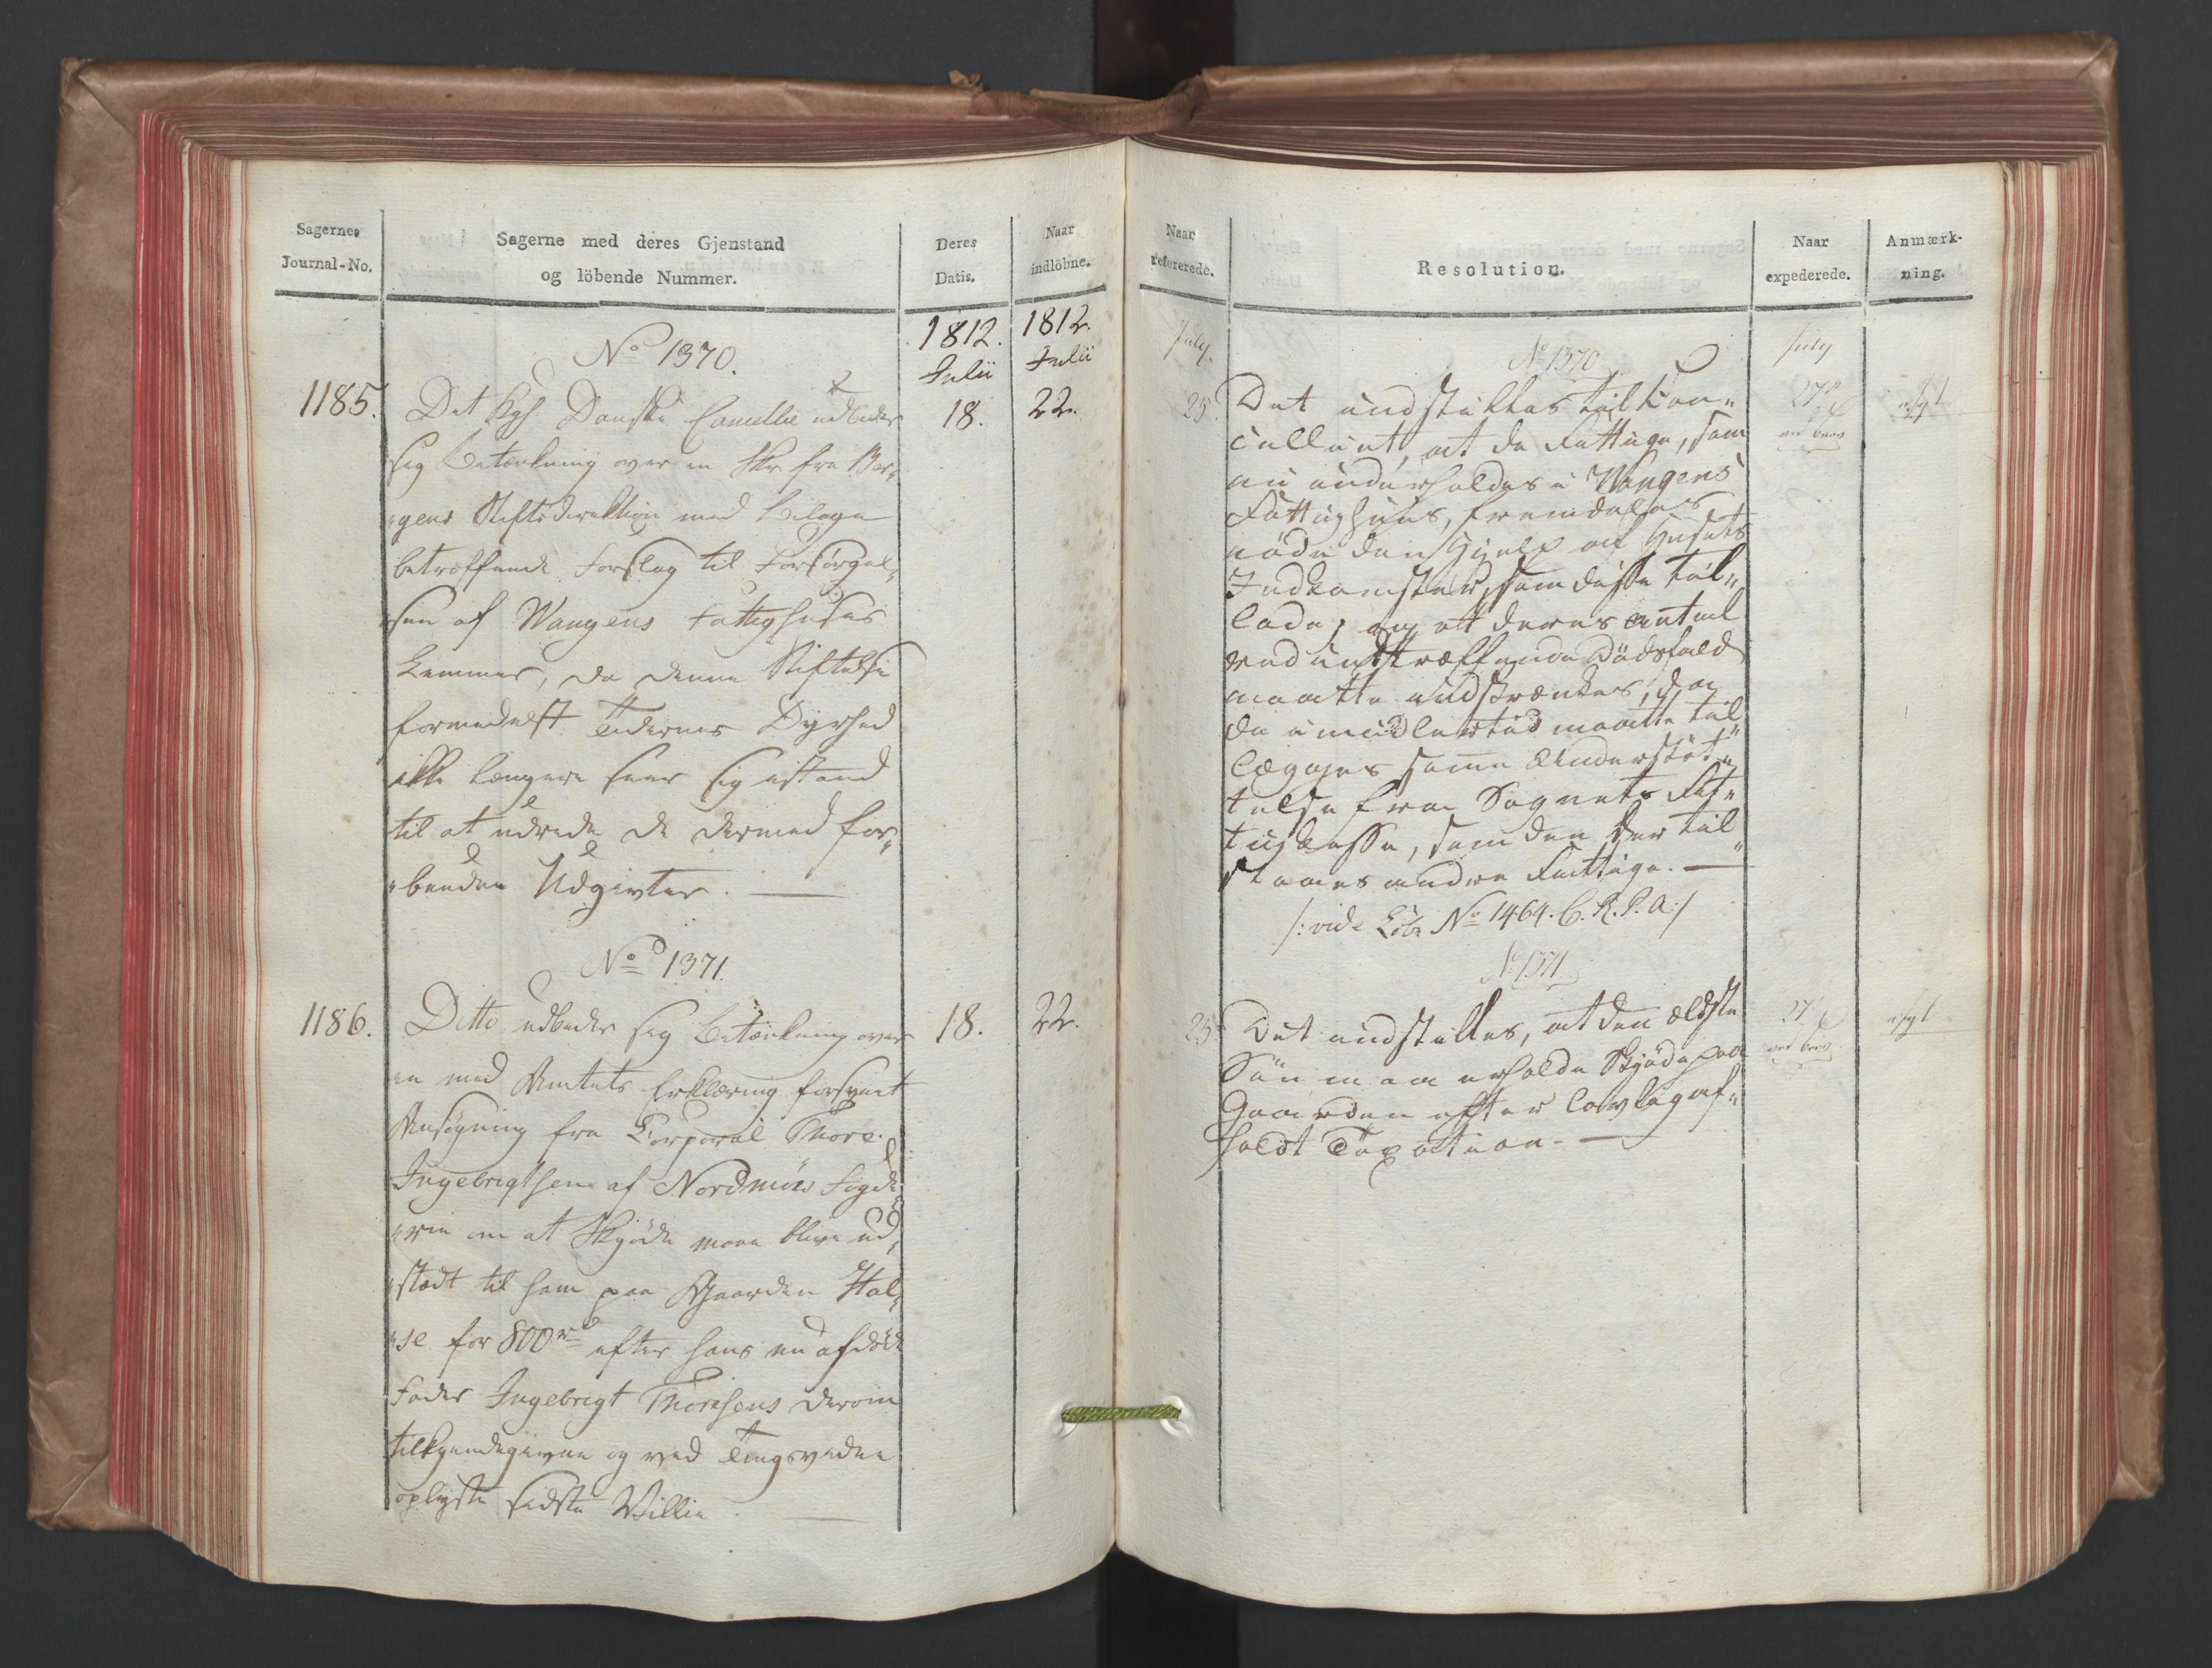 Sagernes
Journal-No.
Sagerne med deres Gjenstand
og löbende Nummer.
Deres
Datis.
Naar
indlöbne.
1812.
Julii
1812.
Julii
No 1370.
1185.
18.
22.
Det Kgl. Danske Cancellie udbeder
sig Betænkning over en Skr. fra Ber„
„gens Stiftsdirektion med Bilage
betræffende Forslag til Forsørgel„
„sen af Wangens Fattighuses
Lemmer, da denne Stiftelse
formedelst Tidernes Dyrhed
ikke længere seer sig istand
til at udrede de dermed for„
„bundne Udgivter. —
No 1371.
1186.
18.
22.
Ditto udbeder sig Betænkning over
en med Amtets Erklæring forsynet
Ansøgning fra Corporal Thore
Ingebrigtsen af Nordmörs Fogde„
„rie om at Skjöde maae blive ud„
„stædt til ham paa Gaarden Hal„
„se for 800 rd efter hans nu afdöde
Fader Ingebrigt Thoresens derom
tilkjendegivne og ved Tingsvidne
oplyste sidste Villie. —
Naar
refererede.
Resolution.
Naar
expederede.
Anmærk-
ning.
July.
July
No 1370
25.
Det indstilles til Can„
celliet, at de Fattige, som
nu underholdes i Wangens
Fattighuus, fremdeles
nÿde den Hjelp af Husets
Indkomster, som disse til„
lade, og at deres Antal
ved indtræffende Dödsfald
maatte indskrænkes, dog
de imidlertid maatte til„
lægges samme Understöt„
telse fra Sognets Fat„
tigkasse, som den der til„
staaes andre Fattige. —
/: vide Löbe No 1464. C. R. P. A :/
No 1371
25.
27
Det indstilles, at den ældste
Sön maa erholde Skjöde paa
Gaarden efter lovlig af„
holdt Taxation. —